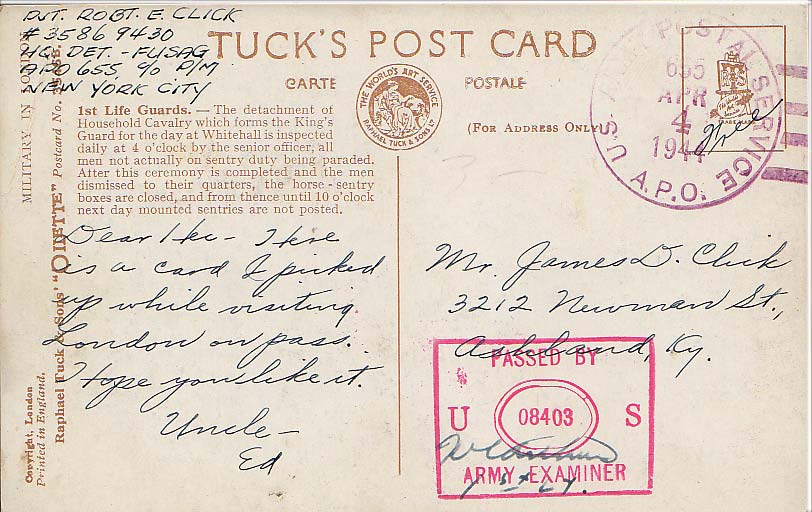 PVT. ROBT. E. CLICK
# 35869430
HQ. DET. - FUSAG
APO 655, c/o P/M
NEW YORK CITY
TUCK'S POST CARD
CARTE POSTALE
THE WORLD'S ART SERVICE
RAPHAEL TUCK & SONS LTD
(FOR ADDRESS ONLY)
1st Life Guards. — The detachment of
Household Cavalry which forms the King's
Guard for the day at Whitehall is inspected
daily at 4 o'clock by the senior officer, all
men not actually on sentry duty being paraded.
After this ceremony is completed and the men
dismissed to their quarters, the horse-sentry
boxes are closed, and from thence until 10 o'clock
next day mounted sentries are not posted.
MILITARY IN LONDON
Raphael Tuck & Sons' "OILETTE" Postcard No.
Copyright, London
Printed in England.
Dear - Here
is a card I picked
up while visiting
London on pass.
Hope you like it.
Uncle -
Ed
POSTAL SERVICE
655
APR
4
1944
U.S. A.P.O.
Free
Mr. James D. Click
3212 Newman St.,
Ashland, Ky.
PASSED BY
U 08403 S
ARMY EXAMINER
1st Lt.